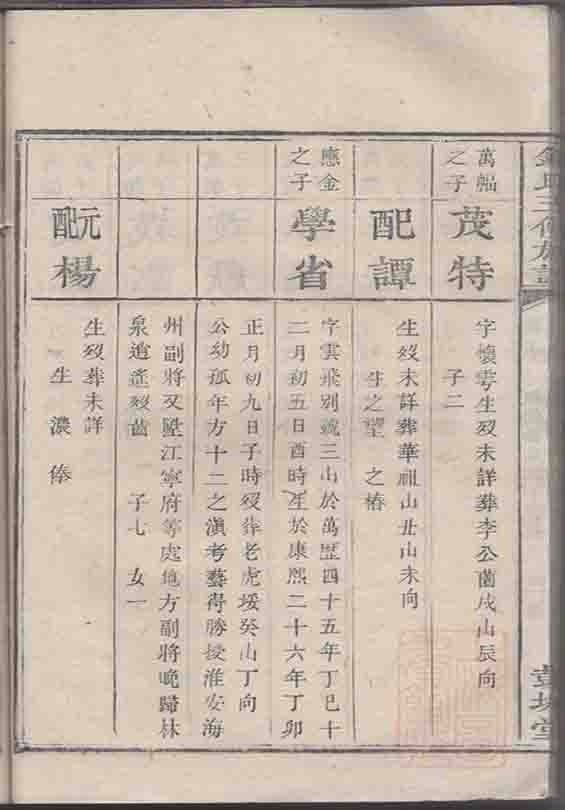 三修族譜
堂
萬幅
之子
茂特
字懷雩生歿未詳葬李公蘭戌山辰向
子二
配譚
生歿未詳葬華祖山丑山未向
生之望 之椿
應金
之子
學省
字雲飛別號三山於萬歷四十五年丁巳十
二月初五日酉時生於康熙二十六年丁卯
正月初九日子時歿葬老虎垵癸山丁向
公幼孤年方十二之滇考藝得勝授淮安海
州副將又陞江寧府等處地方副將晚歸林
泉逍遙歿 子七 女一
元配楊
生歿葬未詳
生 濃俸